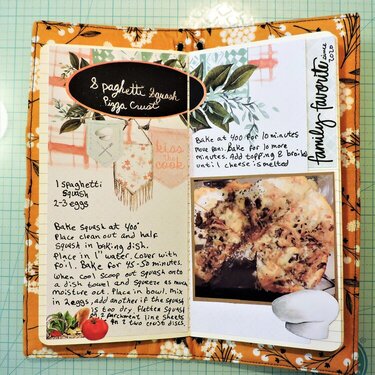 Spaghetti Squash
Pizza Crust
kiss
the
cook
1 spaghetti
squash
2-3 eggs
Bake squash at 400°
Place clean out and half
squash in baking dish.
Place in 1" water. Cover with
foil. Bake for 45-50 minutes.
When cool scoop out squash onto
a dish towel and squeeze as much
moisture out. Place in bowl. Mix
in 2 eggs, add another if the squash
is too dry. Flatten squash
on 2 parchment line sheets
in 2 two crust discs.
Bake at 400 for 10 minutes
more pans. Bake for 10 more
minutes. Add topping & broil
until cheese is melted
Family favorite
since
2020